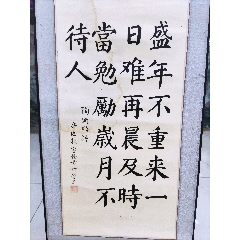 盛年不重来一
日难再晨及時
當勉勵歲月不
待人